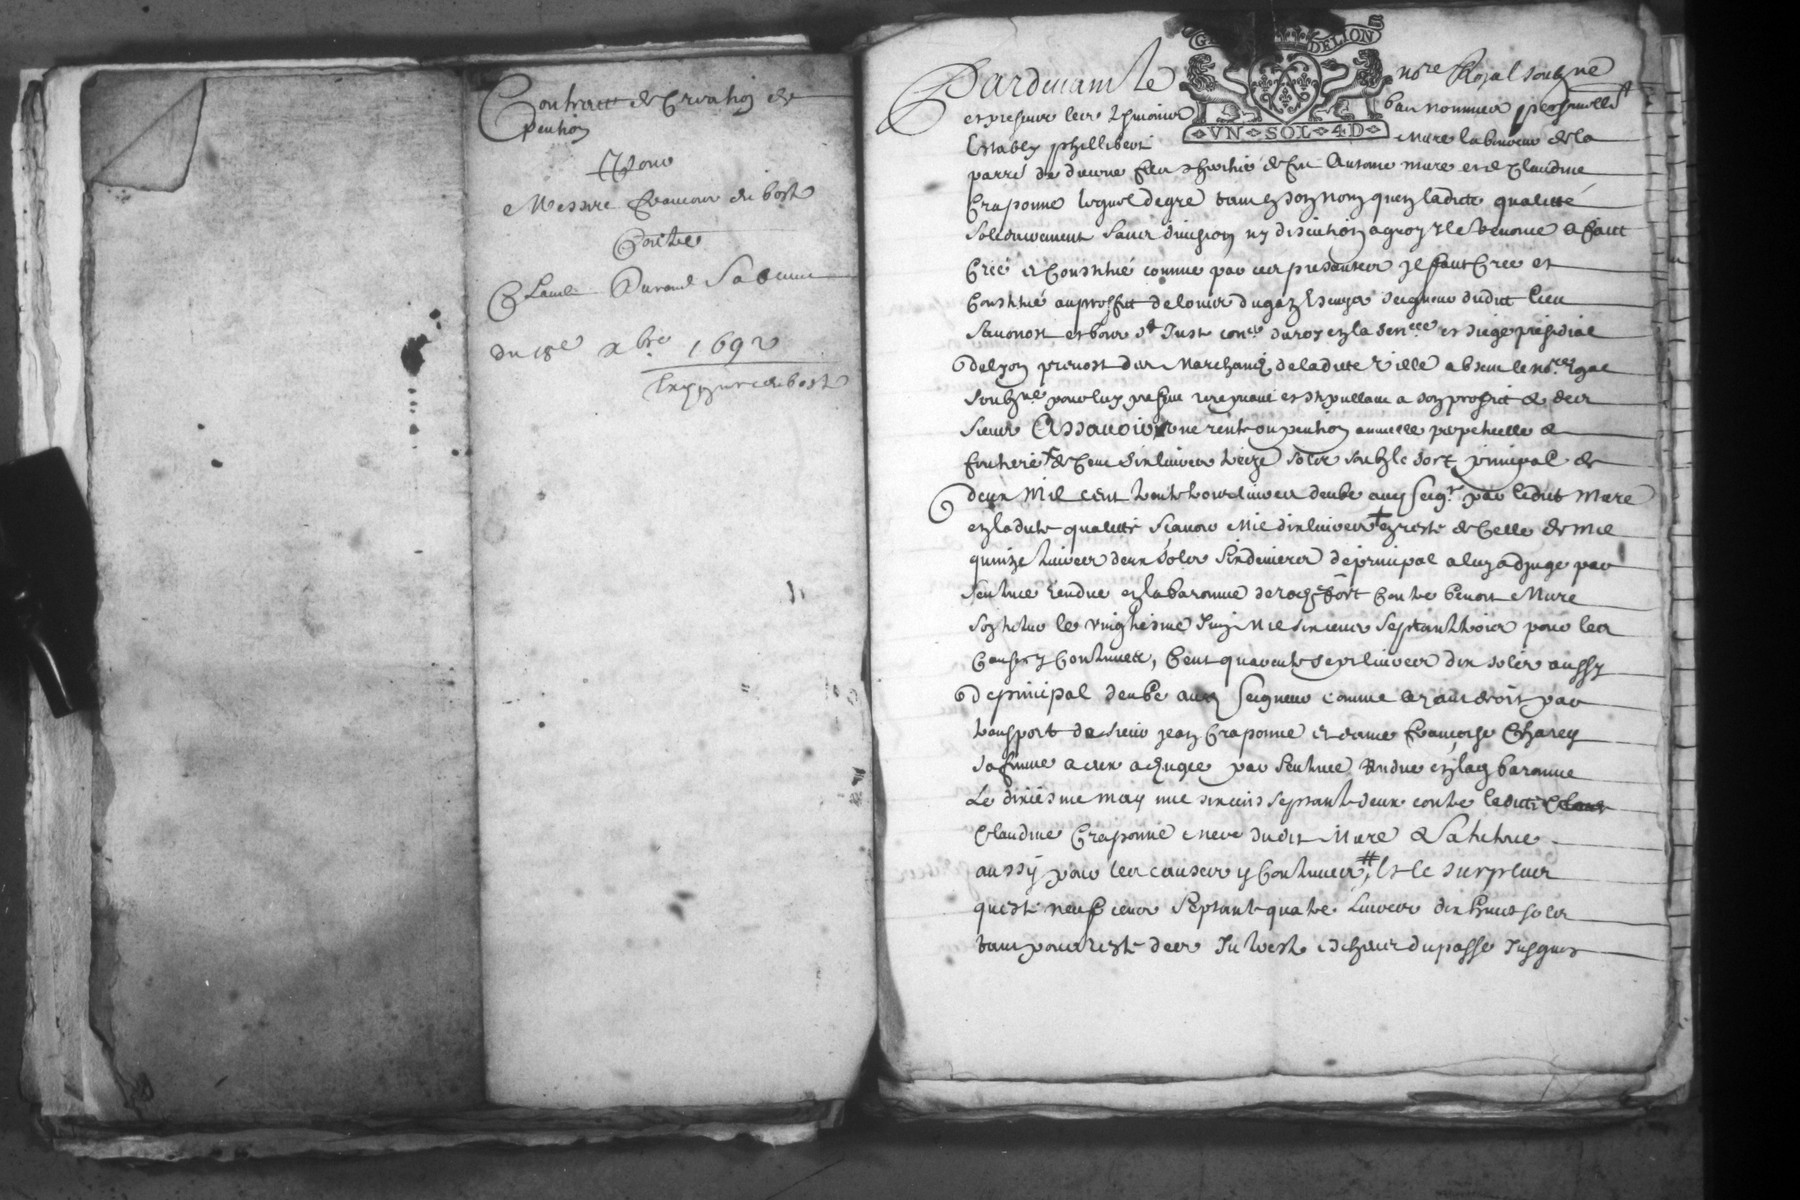 Contract de Creation de
pention
Pour
Messire francois du bost
Contre
Claude Durand Sa femme
du 18e xbre 1692
GE DE LION S
VN SOL 4D
Pardevant le nore Royal soubzne
et presents les thesmoins bas nommes personnellemt
Estably phillibert Mure laboureur de la
parre de duerne fils & heritié de feu Antoine mure et de Claudine
Craponne lequel de gré tant en son nom quen ladicte qualitté
Solidairement sans division ny discution a quoy il renonce a faict
Creé et Constitué comme par ces presantes il faict Cree et
Constitué au proffit de Louis dugas Escuyer seigneur dudit lieu
Savonost et bois st Just coner du roy en la senee et siege présidial
de lyon prevost des Marchands de ladicte Ville absent le nore Royal
soubzne pour luy present acceptant et stipullant a son proffit & des
siens Assavoir une rente ou pention annuelle perpetuelle &
fonciere de Cent six livres treize sols soubz le sort principal de
deux Mil cent trente trois livres deube aud Seigr par ledit Mure
en ladite qualitté sçavoir Mil dix livres en reste de Celle de mil
quinze livres deux sols six deniers de principal a luy adjugé par
sentence rendue en la baronnie de rochefort Contre benoit Mure
le vinghiesme Juin Mil six cents septante trois pour les
Causes y Contenues, Cent quarente sept livres dix sols aussy
de principal deube aud Seigneur comme ayant droit par
transport de sieur jean Craponne et dame francoise Charey
sa femme a eux adjugée par Sentence rendue en lad baronnie
Le dixiesme may mil six cens septante deux contre ladite
Claudine Craponne mere dudit Mure & sa tutrice
aussy pour les causes y Contenues, Et le surplus
quest neuf cens septante quatre Livres dix huict sols
tant pour reste des Interests escheus du passé Jusques